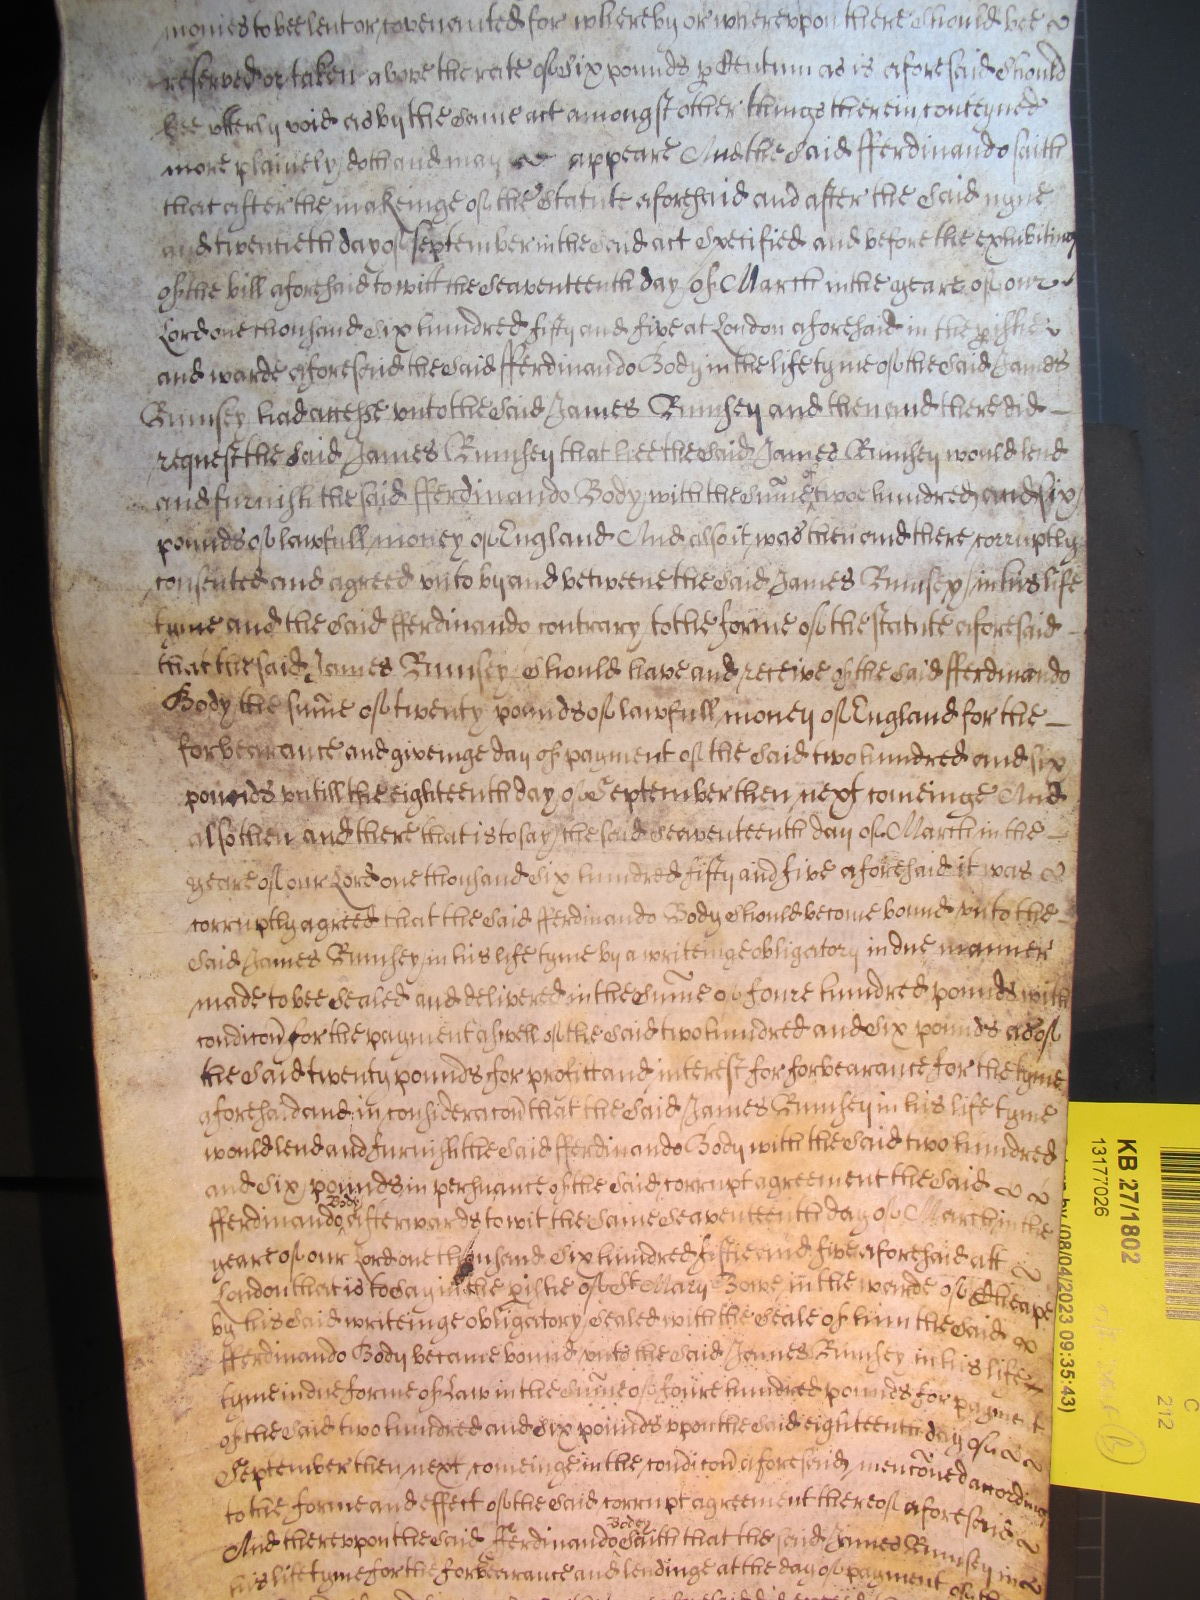 monies to bee lent or covenanted for whereby or whereupon there should bee
reserved or taken above the rate of Six pounds p Centum as is aforesaid Should
bee utterly void as by the Same act amongst other things therein conteyned
more plainely doth and may appeare And the Said fferdinando saith
that after the makeinge of the Statute aforesaid and after the Said nyne
and twentieth day of September in the Said act Specified and before the exhibiting
of the bill aforesaid to witt the Seaventeenth day of March in the yeare of our
Lord one thousand Six hundred fifty and five at London aforesaid in the pishe
and warde aforesaid the Said fferdinando Body in the life tyme of the Said James
Rumsey had accesse unto the Said James Rumsey and then and there did
request the Said James Rumsey that hee the Said James Rumsey would lend
and furnish the said fferdinando Body with the Sume of twoe hundred and six
pounds of lawfull money of England And also it was then and there corruptly
consented and agreed unto by and betweene the Said James Rumsey in his life
tyme and the Said fferdinando contrary to the forme of the statute aforesaid
that the said James Rumsey Should have and receive of the Said fferdinando
Body the sume of twenty pounds of lawfull money of England for the
forbearance and giveinge day of payment of the Said two hundred and six
pounds untill the eighteenth day of September then next comeinge And
also then and there that is to say the said Seaventeenth day of March in the
yeare of our Lord one thousand Six hundred fifty and five aforesaid it was
corruptly agreed that the Said fferdinando Body Should become bound unto the
Said James Rumsey in his life tyme by a writeinge obligatory in due manner
made to bee Sealed and delivered in the Sume of foure hundred pounds with
condicon for the payment aswell of the Said two hundred and Six pounds as of
the Said twenty pounds for profitt and interest for forbearance for the tyme
aforesaid and in consideracon that the Said James Rumsey in his life tyme
would lend and furnish the Said fferdinando Body with the Said two hundred
and Six pounds in persuance of the Said corrupt agreement the Said
fferdinando Body afterwards to wit the Same Seaventeenth day of March in the
yeare of our Lord one thousand Six hundred fiftie and five aforesaid att
London that is to Say in the pishe of St Mary Bowe in the warde of Cheape
by his Said writeinge obligatory Sealed with the Seale of him the Said
fferdinando Body became bound unto the Said James Rumsey in his life
tyme in due forme of Law in the Sume of foure hundred pounds for payment
of the Said two hundred and Six pounds upon the Said eighteenth day of
September then next comeinge in the condicon aforesaid menconed according
to the forme and effect of the Said corrupt agreement thereof aforesaid
And thereupon the Said fferdinando Body Saith that the said James Rumsey in
his life tyme for the forbearance and lendinge at the day of payment of the
KB 27/1802
13177026
(08/04/2023 09:35:43)
C
212